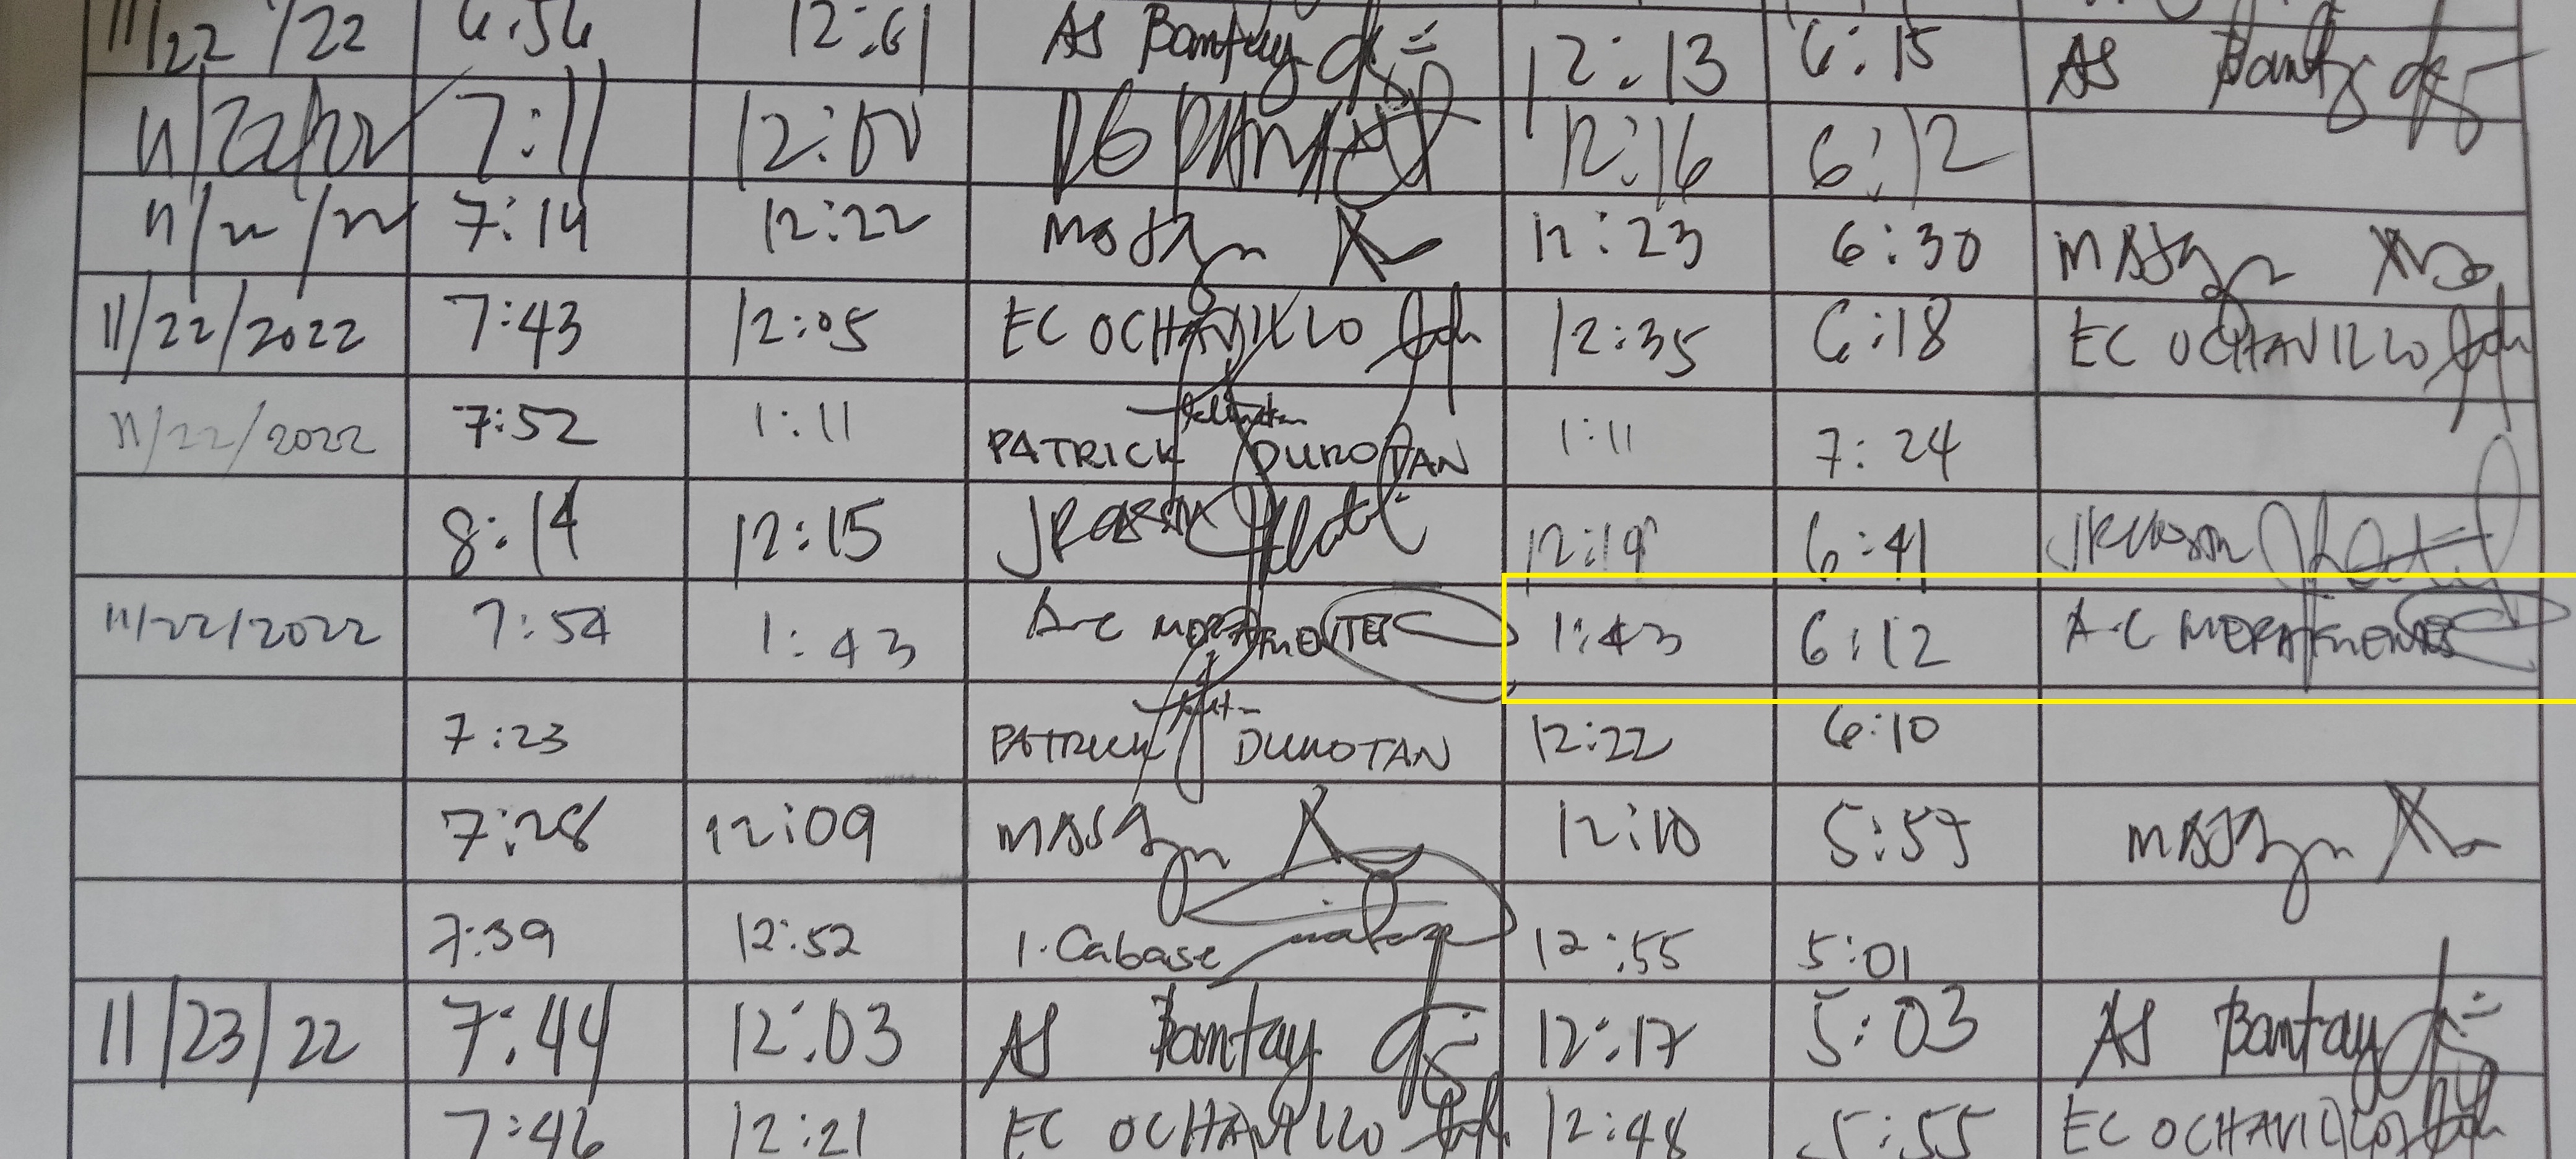 11/22/22 6:56 12:01 AS Bantay 12:13 6:15 AS Bantay
11/22/22 7:11 12:00 12:16 6:12
11/22/22 7:14 12:22 12:23 6:30
11/22/2022 7:43 12:05 EC OCHAVILLO 12:35 6:18 EC OCHAVILLO
11/22/2022 7:52 1:11 PATRICK DUROTAN 1:11 7:24
8:14 12:15 12:19 6:41
11/22/2022 7:54 1:43 A-C 1:43 6:12 A-C
7:23 PATRICK DUROTAN 12:22 6:10
7:28 12:09 12:10 5:59
7:39 12:52 1. Cabase 12:55 5:01
11/23/22 7:44 12:03 AS Bantay 12:17 5:03 AS Bantay
7:46 12:21 EC OCHAVILLO 12:48 5:55 EC OCHAVILLO